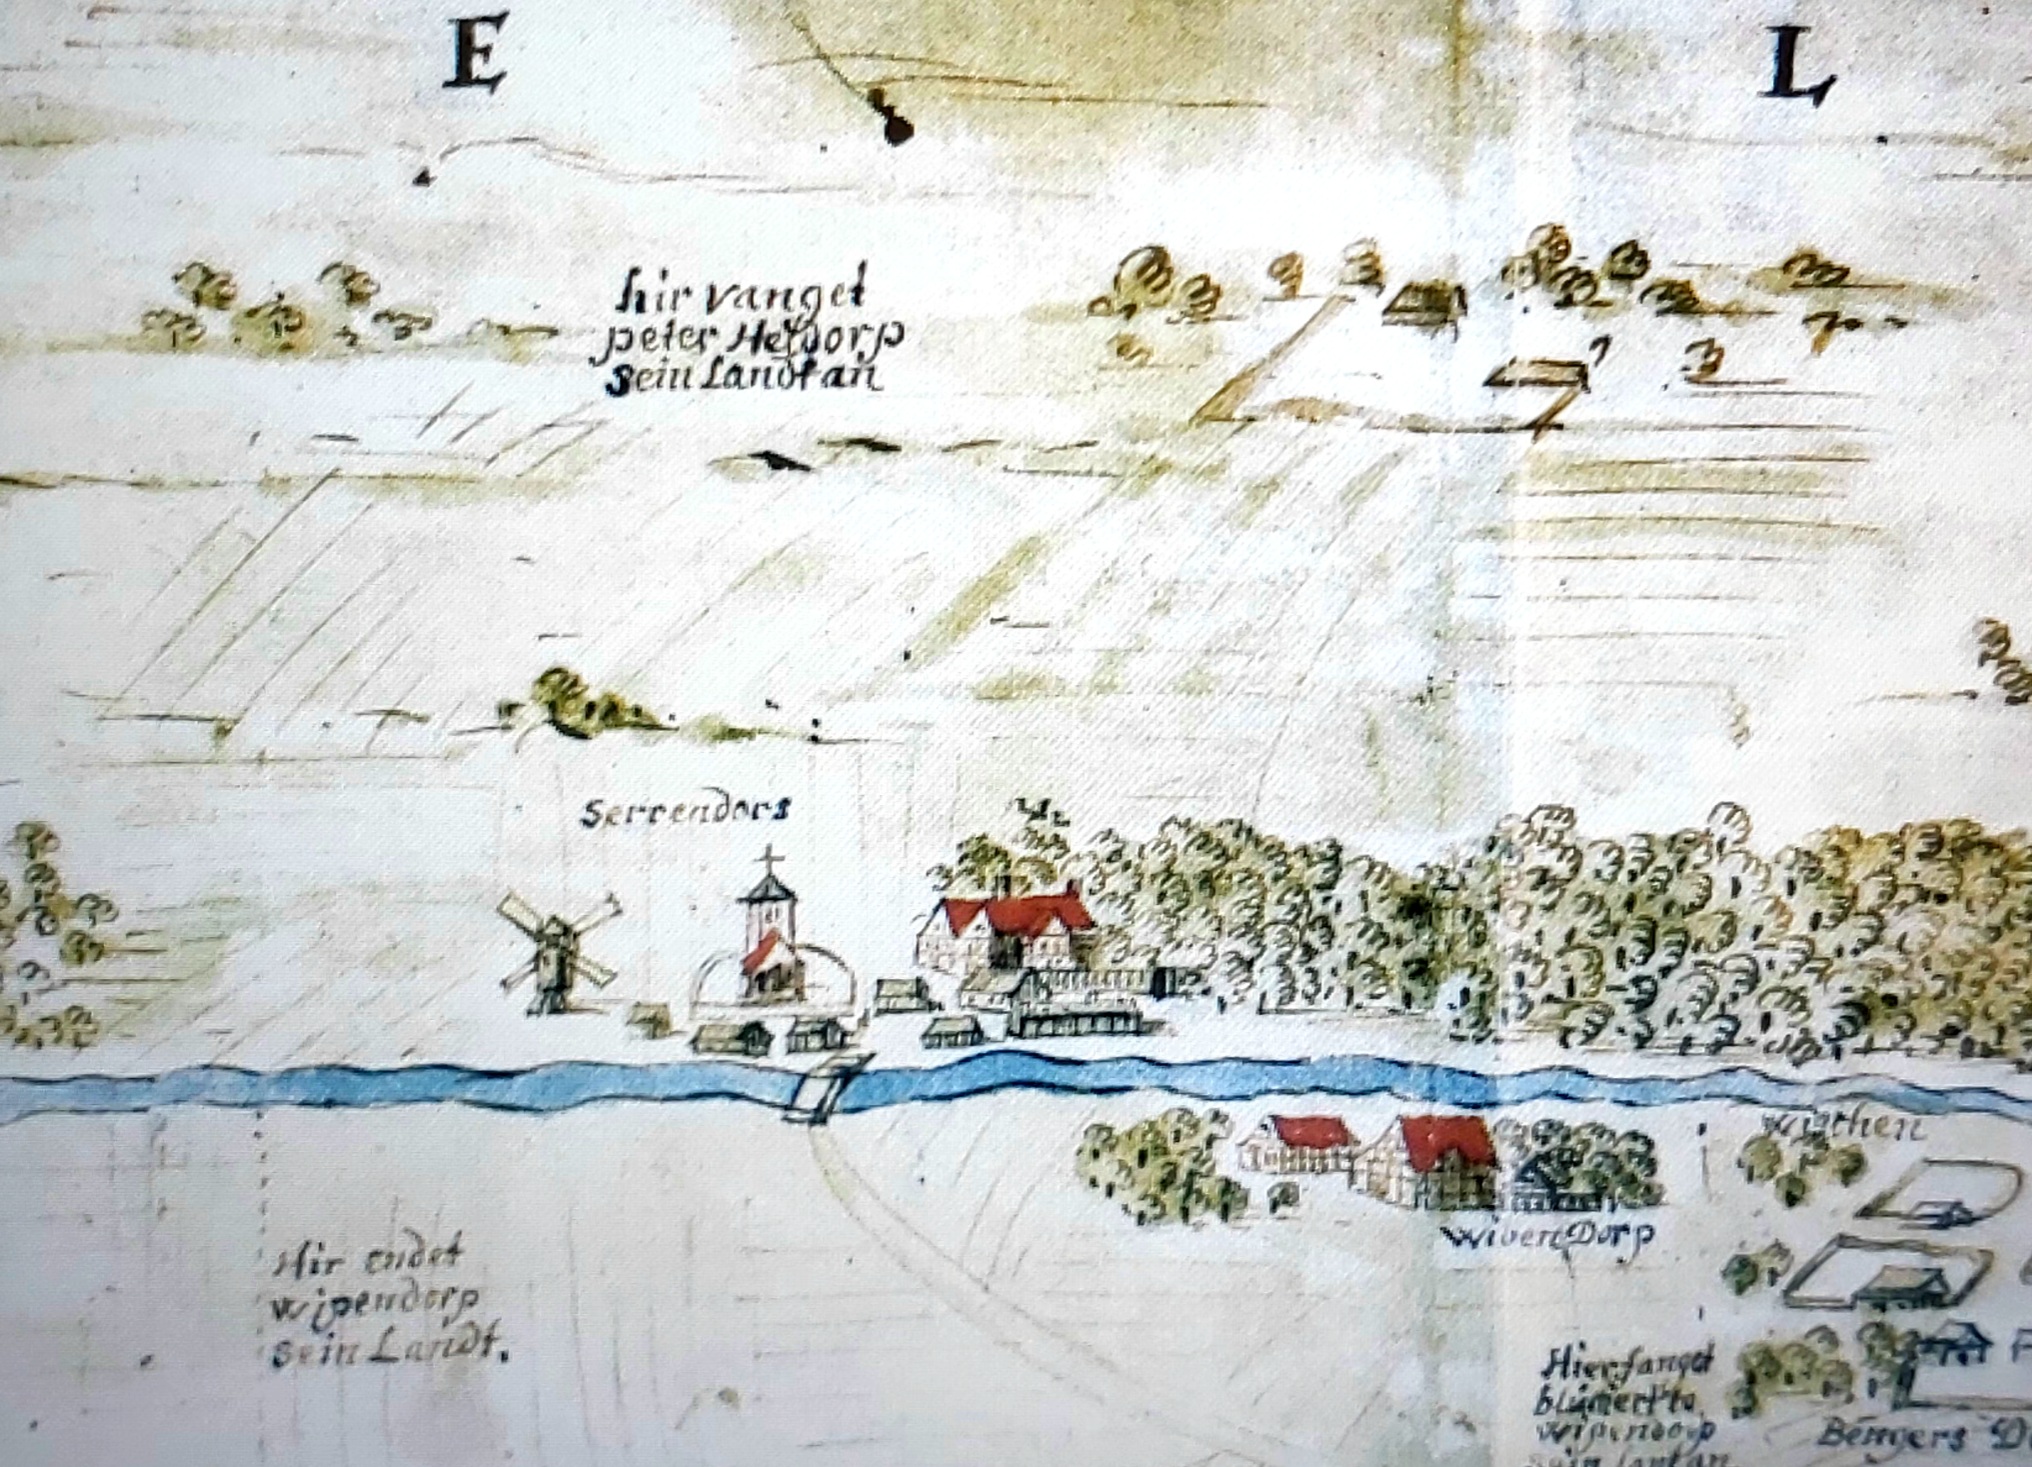 E L
hir vanget
peter Heldorp
sein Landt an
Serrendors
wirthen
wivenDorp
Hir endet
wipendorp
sein Landt.
Hier fanget
blumert to
wipendorp
sein lant an
Bengers D